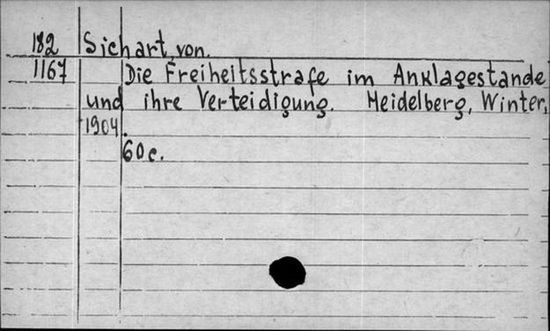 182 Sichart, von.
1167 Die Freiheitsstrafe im Anklagestande
und ihre Verteidigung. Heidelberg, Winter,
1904.
60 c.